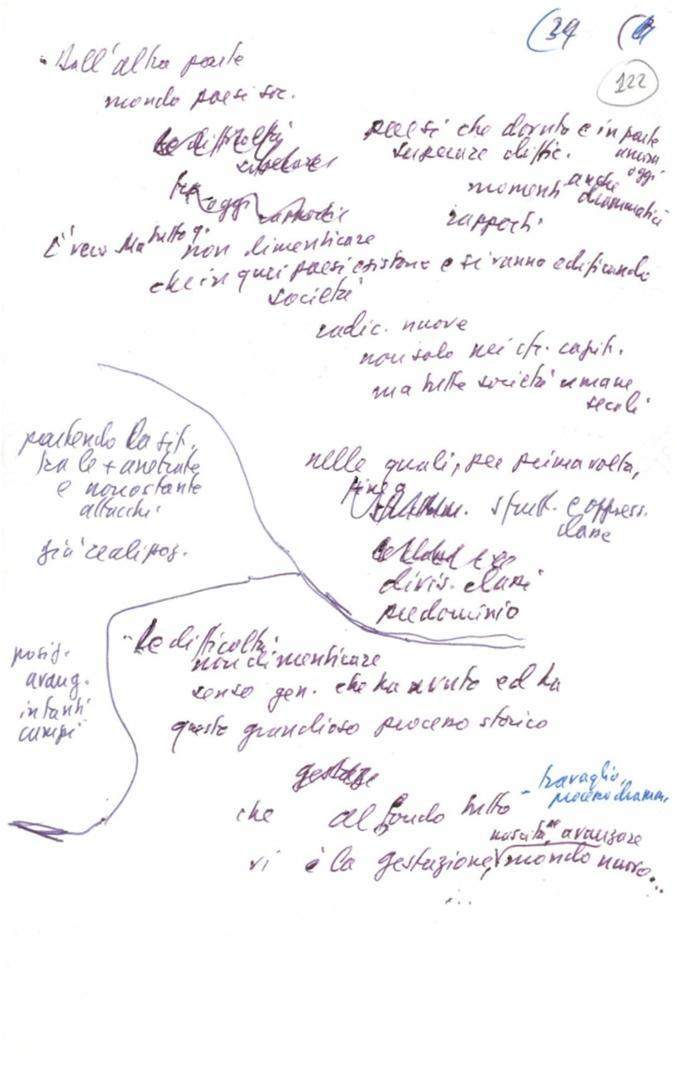 (39 (
122
- Dall'altra parte
mondo paesi soc.
Le difficoltà
paesi che dovuto e in parte
ancora
oggi
superare diffic.
momenti anche drammatici
rapporti
oggi
È vero Ma tutto q.
non dimenticare
che in quei paesi esistono e si vanno edificando
società
radic. nuove
non solo nei cfr. capit.
ma tutte società umane
secoli
partendo da sit.
tra le + arretrate
e nonostante
attacchi
già realizzaz.
nelle quali, per prima volta,
fine a
sfrutt. e oppress.
classe
divis. classi
predominio
posiz.
avanz.
in tanti
campi
- Le difficoltà
non dimenticare
senso gen. che ha avuto ed ha
questo grandioso processo storico
che al fondo tutto
- travaglio,
processo dramm.
nascita, avanzare
vi è la gestazione, mondo nuovo...
...